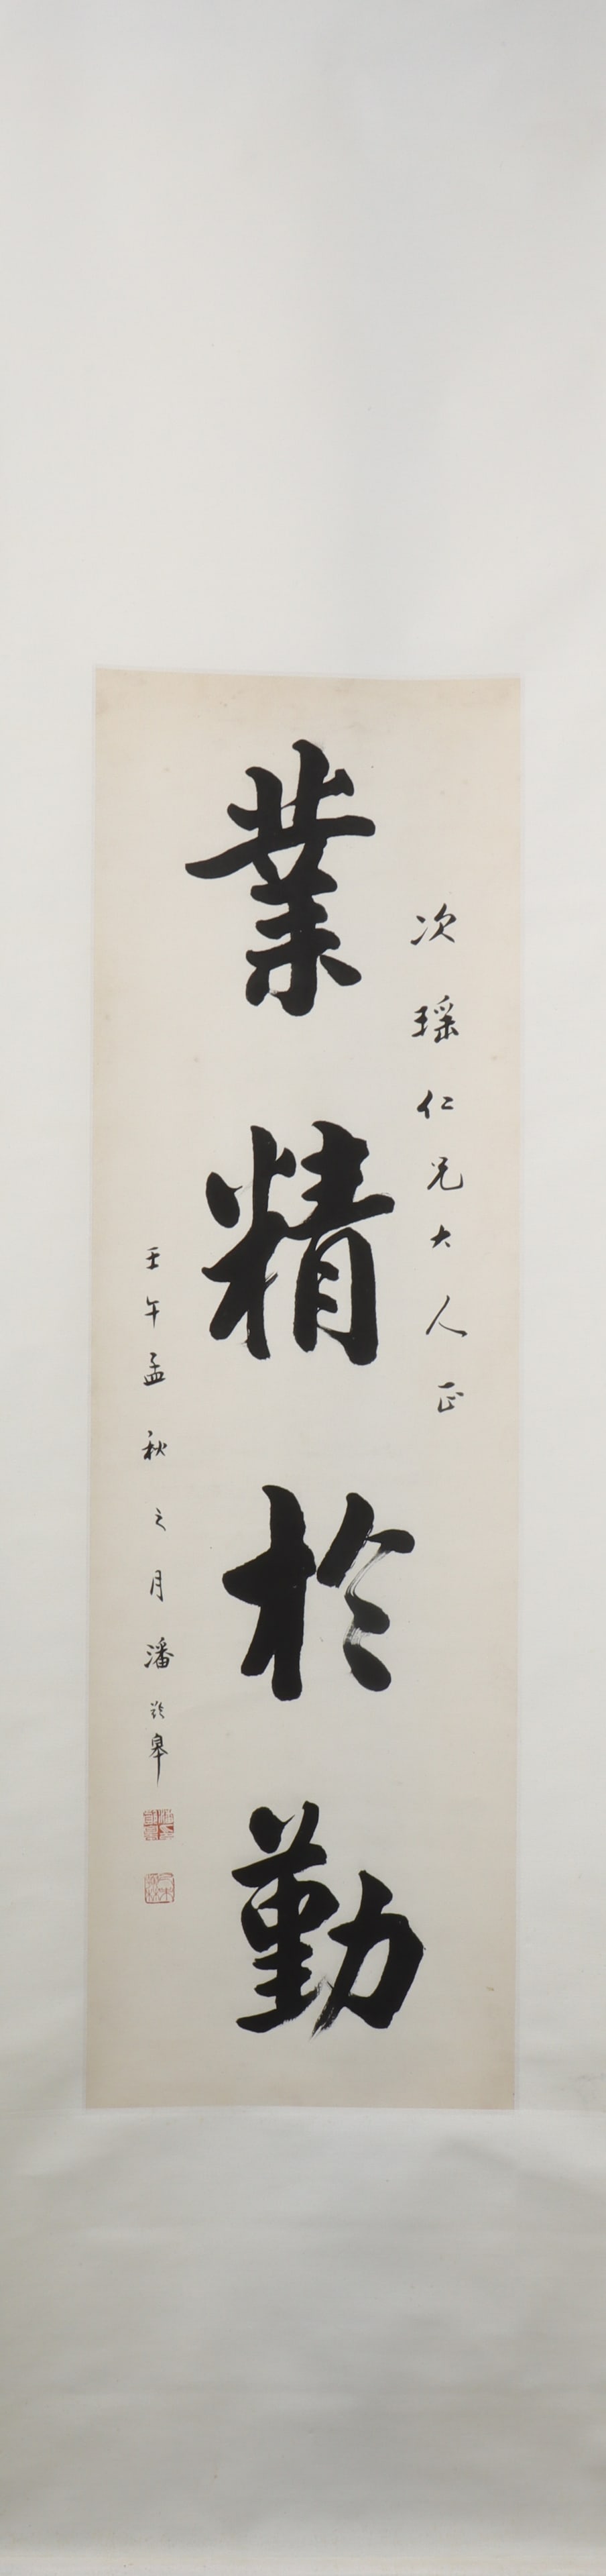 次瑶仁兄大人正
業精於勤
壬午孟秋之月潘齡皋